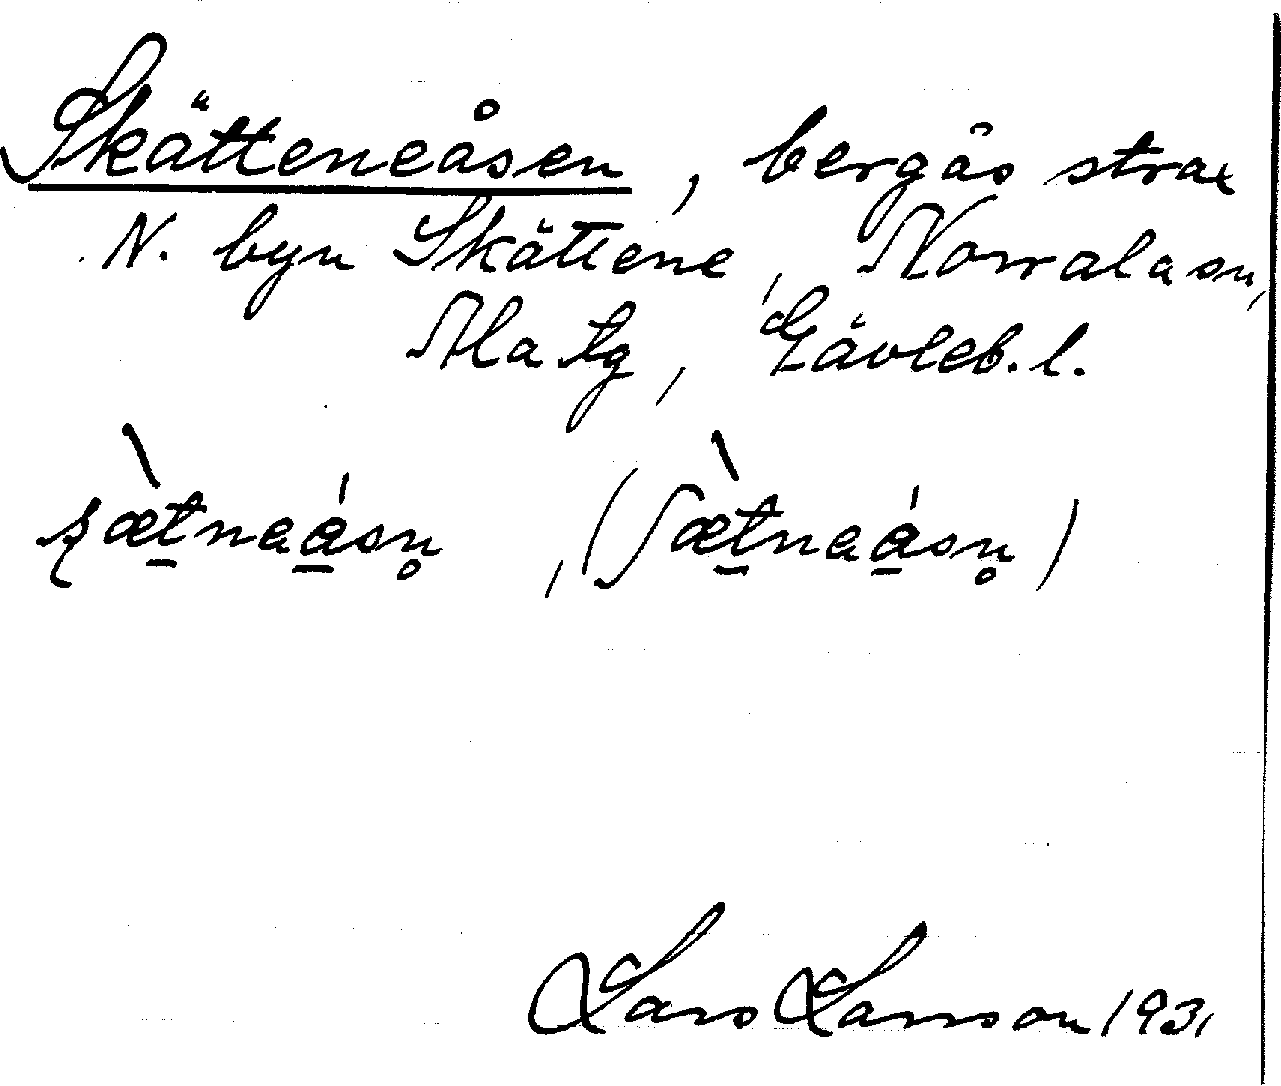 Skätteneåsen, bergås strax
N. byn Skättene, Norrala sn,
Ala tg, Gävleb. l.
ʂæ̀t̠neá̠sn̥, (ʃæ̀t̠neá̠sn̥)
Lars Larsson 1931